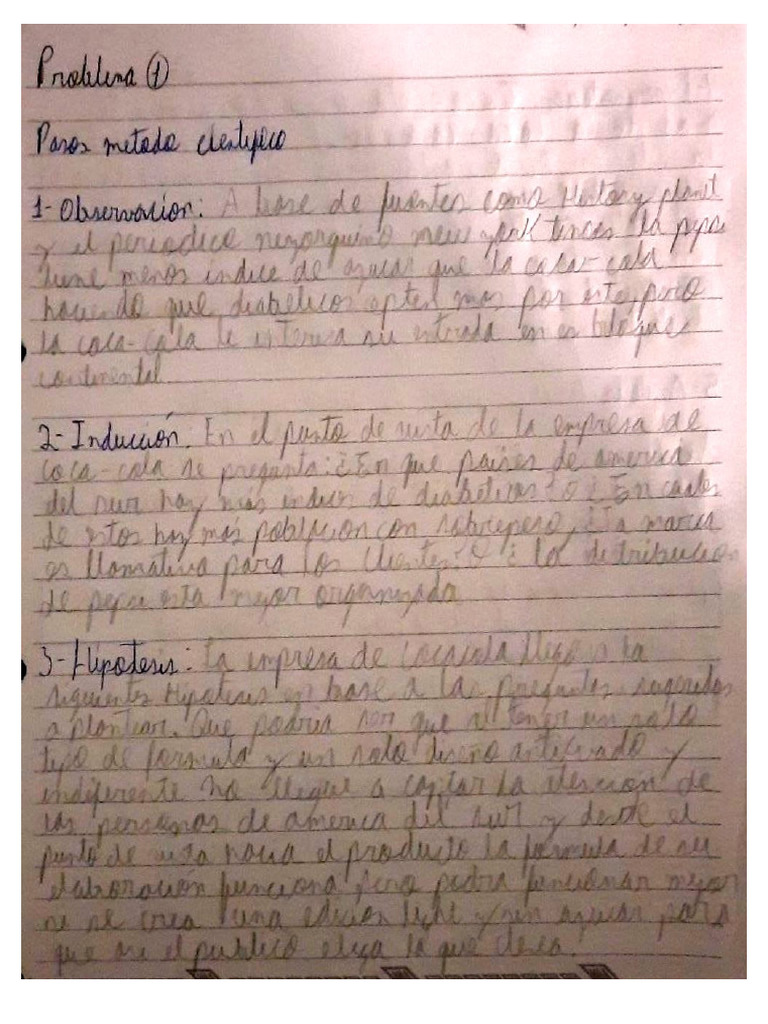 Problema ①
Pasos metodo cientifico
1- Observacion: A base de fuentes como History planet
y el periodico neoyorquino new york times la pepsi
tiene menos indice de azucar que la coca-cola
haciendo que diabeticos opten mas por esto, pero
la coca-cola le interesa su entrada en es bloque
continental
2- Inducción. En el punto de vista de la empresa de
coca-cola se pregunta: ¿En que paises de america
del sur hay mas indices de diabeticos? o ¿En cuales
de estos hay más poblacion con sobrepeso, ¿La marca
es llamativa para los clientes? O ¿ la distribucion
de pepsi esta mejor organizada
3- Hipotesis: La empresa de Cocacola llego a la
siguientes Hipotesis en base a las preguntas sugeridas
a plantear. Que podria ser que al tener un solo
tipo de formula y un solo diseño anticuado y
indiferente no llegue a captar la atencion de
las personas de america del sur y desde el
punto de vista hacia el producto la formula de su
elaboración funciona, pero podria funcionar mejor
si se crea una edicion light y sin azucar para
que asi el publico elija lo que desea.